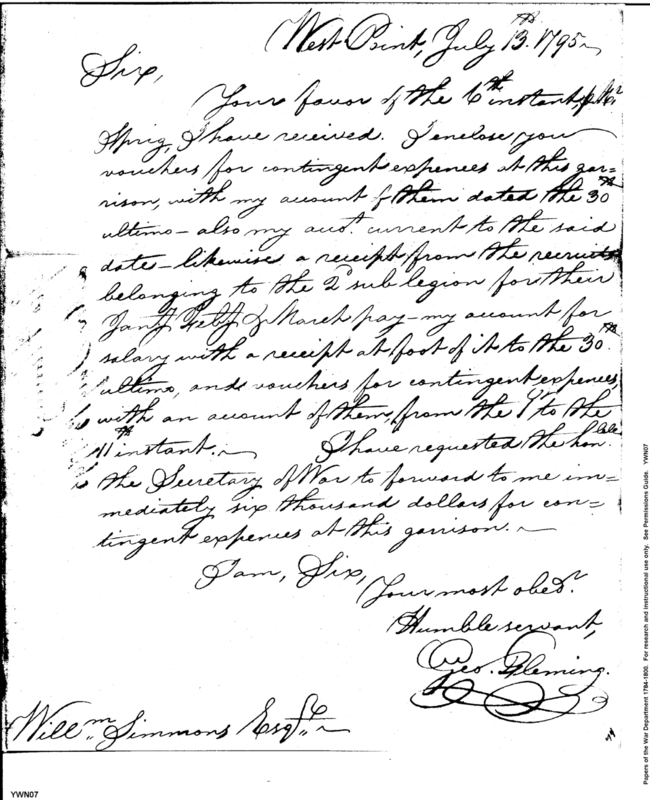 West Point, July 13th. 1795
Sir,
Your favor of the 6th instant, p Mr
Sprig, I have received. I enclose you
vouchers for contingent expences at this gar=
rison, with my account of them dated the 30th
ultimo - also my acct. current to the said
date - likewise a receipt from the recruits
belonging to the 2d sub legion for their
Jany Feby & March pay - my account for
salary with a receipt at foot of it to the 30th.
ultimo, and vouchers for contingent expences,
with an account of them, from the 1st to the
11th instant. I have requested the honble.
the Secretary of War to forward to me im=
mediately six thousand dollars for con=
tingent expences at this garrison.
I am, Sir,
Your most obedt.
Humble servant,
Geo. Fleming.
Willm Simmons Esqr
YWN07
Papers of the War Department 1784-1800. For research and instructional use only. See Permissions Guide. YWN07